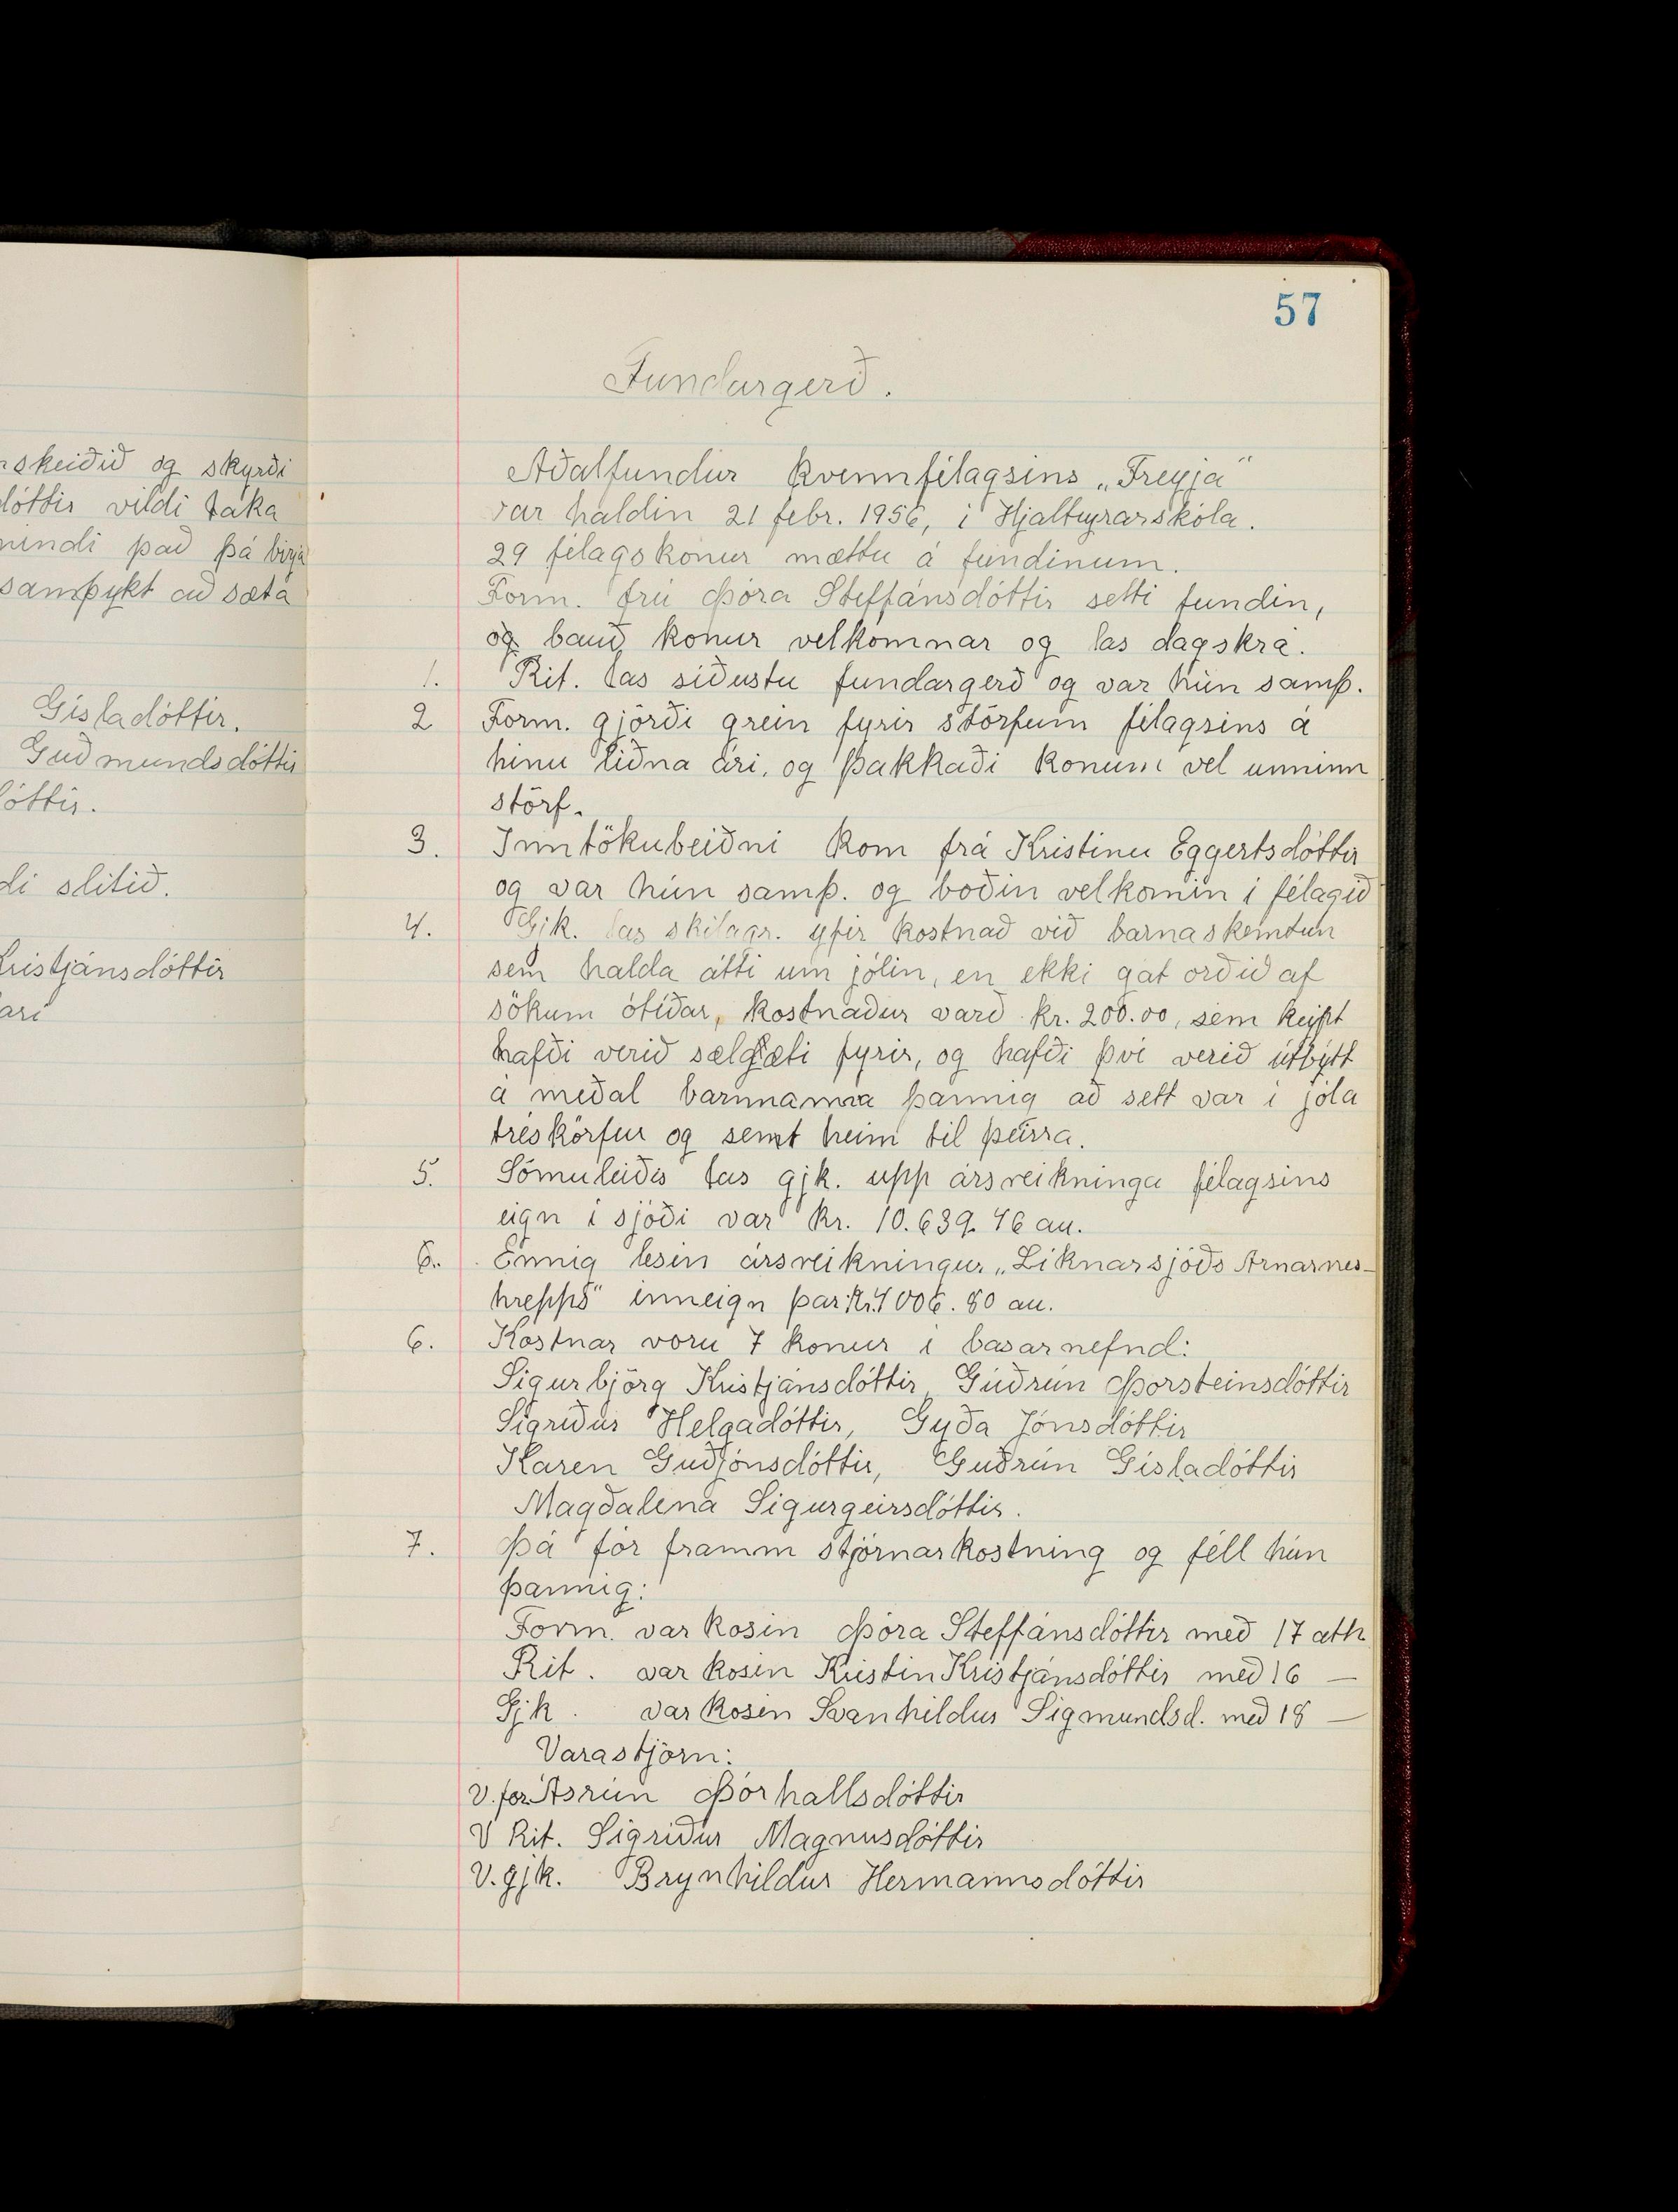 57
Fundargerð.
Aðalfundur kvennfélagsins „Freyja"
var haldin 21 febr. 1956, í Hjalteyrarskóla.
29 félagskonur mættu á fundinum.
Form. frú Þóra Steffánsdóttir setti fundin,
og bauð konur velkomnar og las dagskrá.
1. Rit. las síðustu fundargerð og var hún samþ.
2 Form. gjörði grein fyrir störfum félagsins á
hinu liðna ári, og þakkaði konum vel unninn
störf.
3. Inntökubeiðni kom frá Kristínu Eggertsdóttir
og var hún samþ. og boðin velkomin í félagið
4. Gjk. las skilagr. yfir kostnað við barnaskemtun
sem halda átti um jólin, en ekki gat orðið af
sökum ótíðar, kostnaður varð kr. 200.00, sem keipt
hafði verið sælgæti fyrir, og hafði því verið útbýtt
á meðal barnnanna þannig að sett var í jóla
tréskörfur og sent heim til þeirra.
5. Sömuleiðis las gjk. upp ársreikninga félagsins
eign í sjóði var kr. 10.639.46 au.
6. Ennig lesin ársreikningur „Líknarsjóðs Arnarnes-
hrepps" inneign þar kr. 4006.80 au.
6. Kostnar voru 7 konur í basarnefnd:
Sigurbjörg Kristjánsdóttir, Guðrún Þorsteinsdóttir
Sigríður Helgadóttir, Gyða Jónsdóttir
Karen Guðjónsdóttir, Guðrún Gísladóttir
Magðalena Sigurgeirsdóttir.
7. Þá fór framm stjórnarkostning og féll hún
þannig:
Form. var kosin Þóra Steffánsdóttir með 17 atk
Rit. var kosin Kristín Kristjánsdóttir með 16 —
Gjk. var kosin Svanhildur Sigmundsd. með 18 —
Varastjórn:
V. for. Ásrún Þórhallsdóttir
V Rit. Sigríður Magnusdóttir
V. gjk. Brynhildur Hermannsdóttir
skeiðið og skyrði
dóttir vildi taka
það þá birja
samþykt að sæta
Gísladóttir.
Guðmundsdóttir
dóttir.
slitið.
Kristjánsdóttir
ari